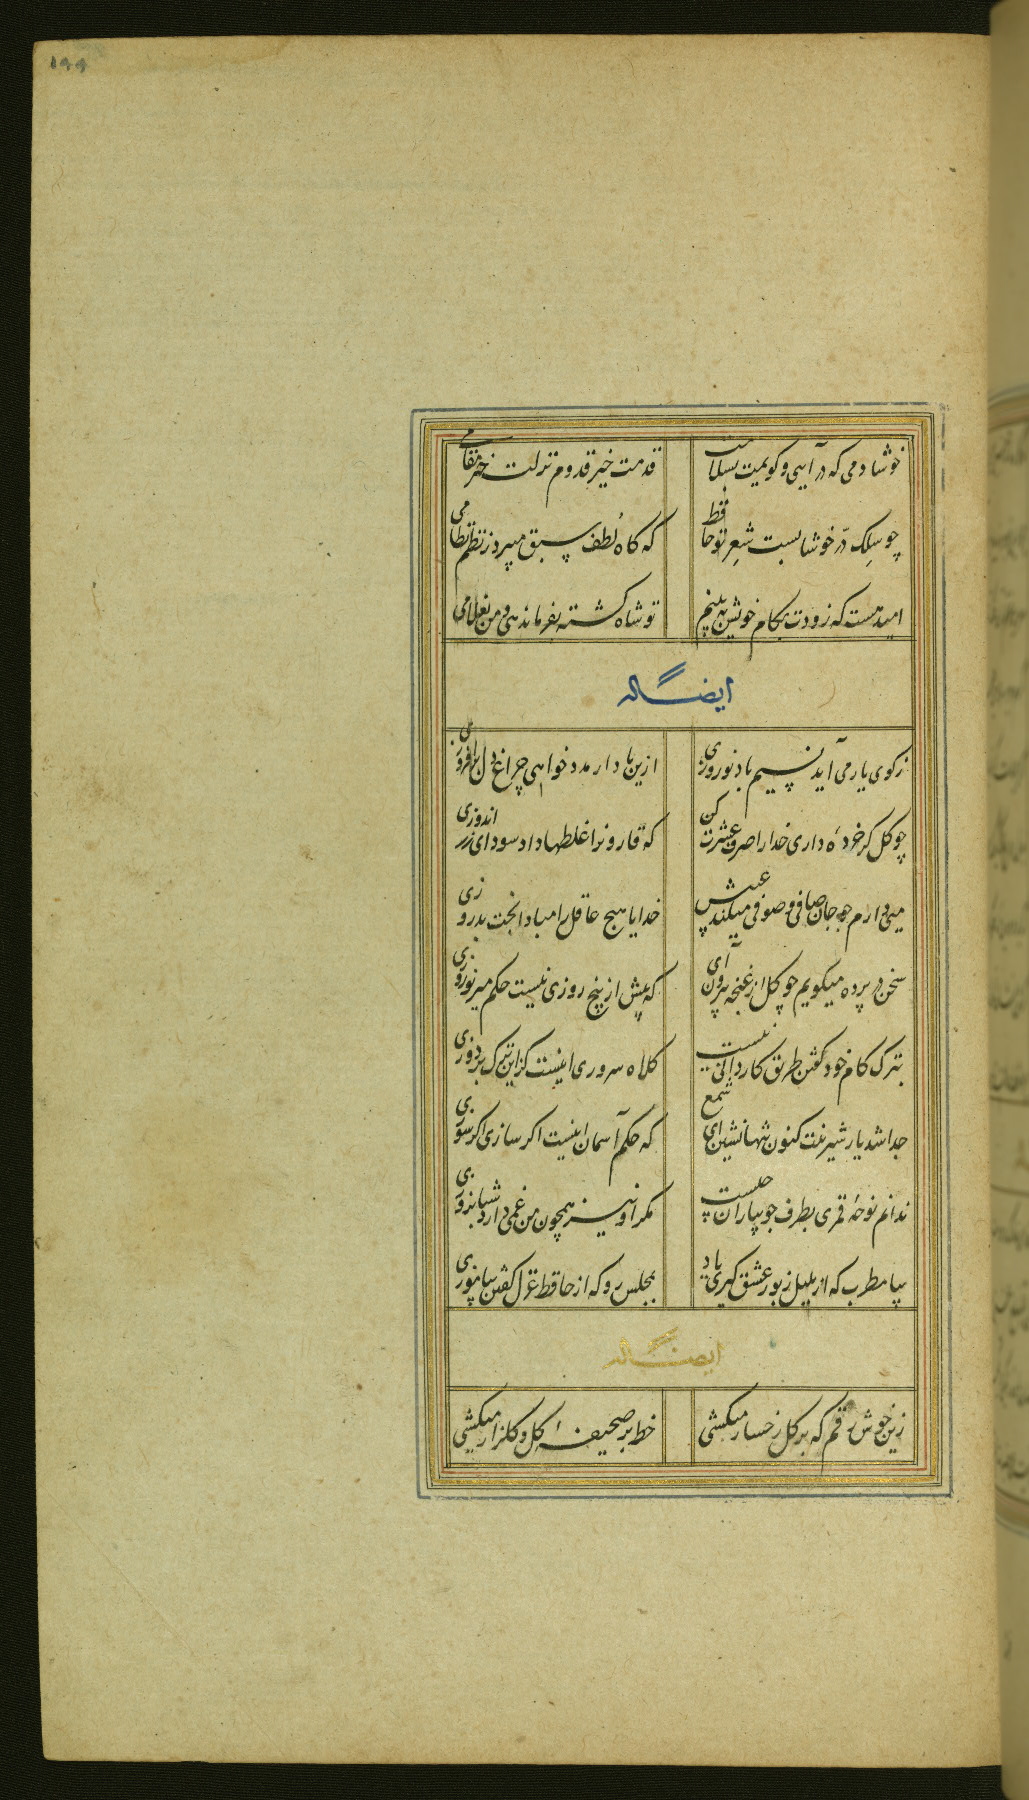 ۱۹۹
خوشا دمی که در آیی و گویمت بسلامت
قدمت خیر قدوم نزلت خیر مقامی
چو سلک در خوشابست شعر تو حافظ
که گاه لطف سبق میبرد ز نظم نظامی
امید هست که زودت بکام خویش به بینم
تو شاه گشته بفرماندهی و من بغلامی
ایضاً له
ز کوی یار می آید نسیم باد نوروزی
ازین باد ار مدد خواهی چراغ دل برافروزی
چو گل گر خرده داری خدا را صرف عشرت کن
که قارونرا غلطها داد سودای زر اندوزی
میی دارم چو جان صافی و صوفی میکند عیبش
خدایا هیچ عاقل را مبادا بخت بد روزی
سخن در پرده میگویم چو گل از غنچه بیرون آی
که بیش از پنج روزی نیست حکم میر نوروزی
بترک کام خود گفتن طریق کاردانی نیست
کلاه سروری اینست کزاین ترک بردوزی
جدا شد یار شیرینت کنون تنها نشین ای شمع
که حکم آسمان اینست اگر سازی اگر سوزی
ندانم نوحهٔ قمری بطرف جویباران چیست
مگر او نیز همچون من غمی دارد شبانروزی
بیا مطرب که از بلبل زبور عشق گیری یاد
بمجلس رو که از حافظ غزل گفتن بیاموزی
ایضاً له
زین خوش رقم که بر گل رخسار میکشی
خط بر صحیفه گل و گلزار میکشی